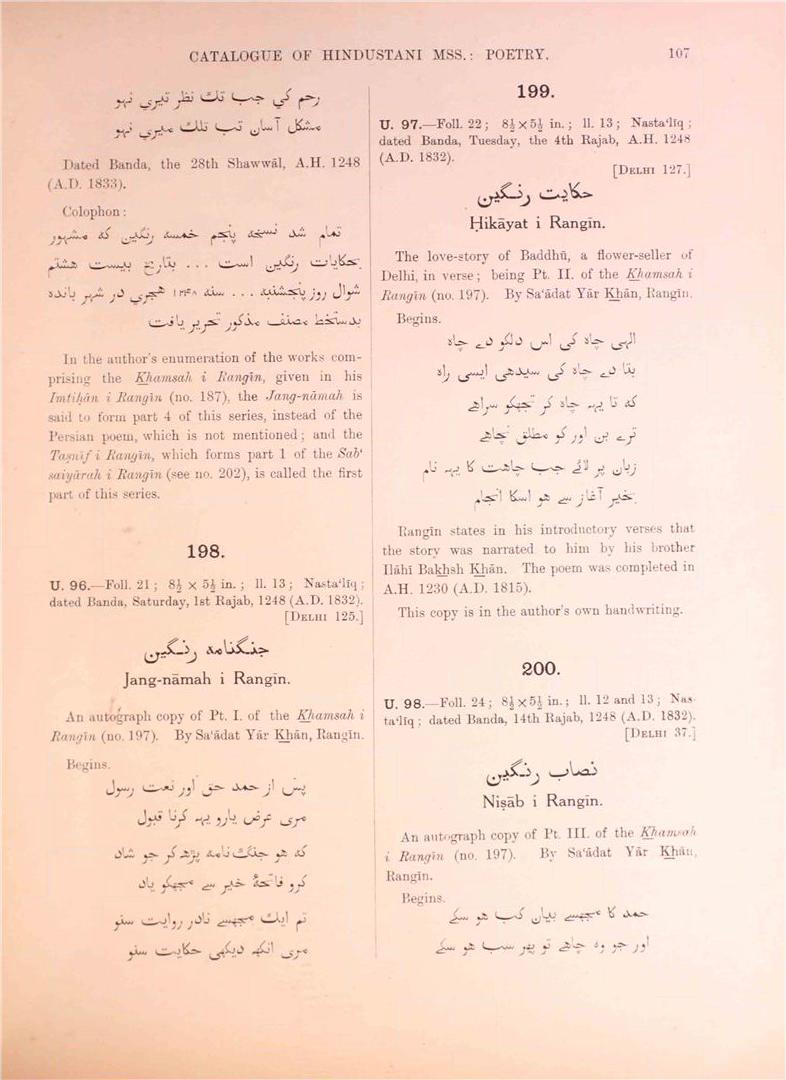 CATALOGUE OF HINDUSTANI MSS.: POETRY.
107
رحم كي جب تك نظر تيري نهو
مشكل آسان تب تلك ميري نهو
Dated Banda, the 28th Shawwāl, A.H. 1248
(A.D. 1833).
Colophon:
تمام شد نسخه پنجم خمسه رنگين كه مشهور
بحكايات رنگين است ... بتاريخ بيست هشتم
شوال روز پنجشنبه ... سنه ١٢٤٨ هجري در شهر بانده
بدستخط مصنف مذكور تحرير يافت
In the author's enumeration of the works com-
prising the Khamsah i Rangīn, given in his
Imtiḥān i Rangīn (no. 187), the Jang-nāmah is
said to form part 4 of this series, instead of the
Persian poem, which is not mentioned; and the
Taṣnīf i Rangīn, which forms part 1 of the Sab‘
saiyārah i Rangīn (see no. 202), is called the first
part of this series.
198.
U. 96.—Foll. 21; 8½ × 5½ in.; ll. 13; Nasta‘līq;
dated Banda, Saturday, 1st Rajab, 1248 (A.D. 1832).
[DELHI 125.]
جنگنامه رنگين
Jang-nāmah i Rangīn.
An autograph copy of Pt. I. of the Khamsah i
Rangīn (no. 197). By Sa‘ādat Yār Khān, Rangīn.
Begins.
پس از حمد حق اور نعت رسول
مری عرض يارو يہه كرنا قبول
كه هو جنگ نامه پڑهكر جو شاد
كرو فاتحهٔ خير سے مجهكو ياد
تم ايك مجهسے نادر روايت سنو
مری انكهه ديكهی حكايت سنو
199.
U. 97.—Foll. 22; 8½ × 5½ in.; ll. 13; Nasta‘līq;
dated Banda, Tuesday, the 4th Rajab, A.H. 1248
(A.D. 1832).
[DELHI 127.]
حكايت رنگين
Ḥikāyat i Rangīn.
The love-story of Baddhū, a flower-seller of
Delhi, in verse; being Pt. II. of the Khamsah i
Rangīn (no. 197). By Sa‘ādat Yār Khān, Rangīn.
Begins.
الہی چاه كی اس دلكو دے چاه
بتا دے چاه كی سيدهی ايسی راه
كه تا يہه چاه كر تجهكو سراهے
ترے بن اور كو مطلق نچاهے
زبان پر لائے جب چاهت كا يہه نام
بخير آغاز سے هو اسكا انجام
Rangīn states in his introductory verses that
the story was narrated to him by his brother
Ilāhī Bakhsh Khān. The poem was completed in
A.H. 1230 (A.D. 1815).
This copy is in the author's own handwriting.
200.
U. 98.—Foll. 24; 8½ × 5½ in.; ll. 12 and 13; Nas-
ta‘līq; dated Banda, 14th Rajab, 1248 (A.D. 1832).
[DELHI 37.]
نصاب رنگين
Niṣāb i Rangīn.
An autograph copy of Pt. III. of the Khamsah
i Rangīn (no. 197). By Sa‘ādat Yār Khān,
Rangīn.
Begins.
حمد كا مجهسے بيان كب هو سكے
اور جو وه چاهے تو پهر سب هو سكے